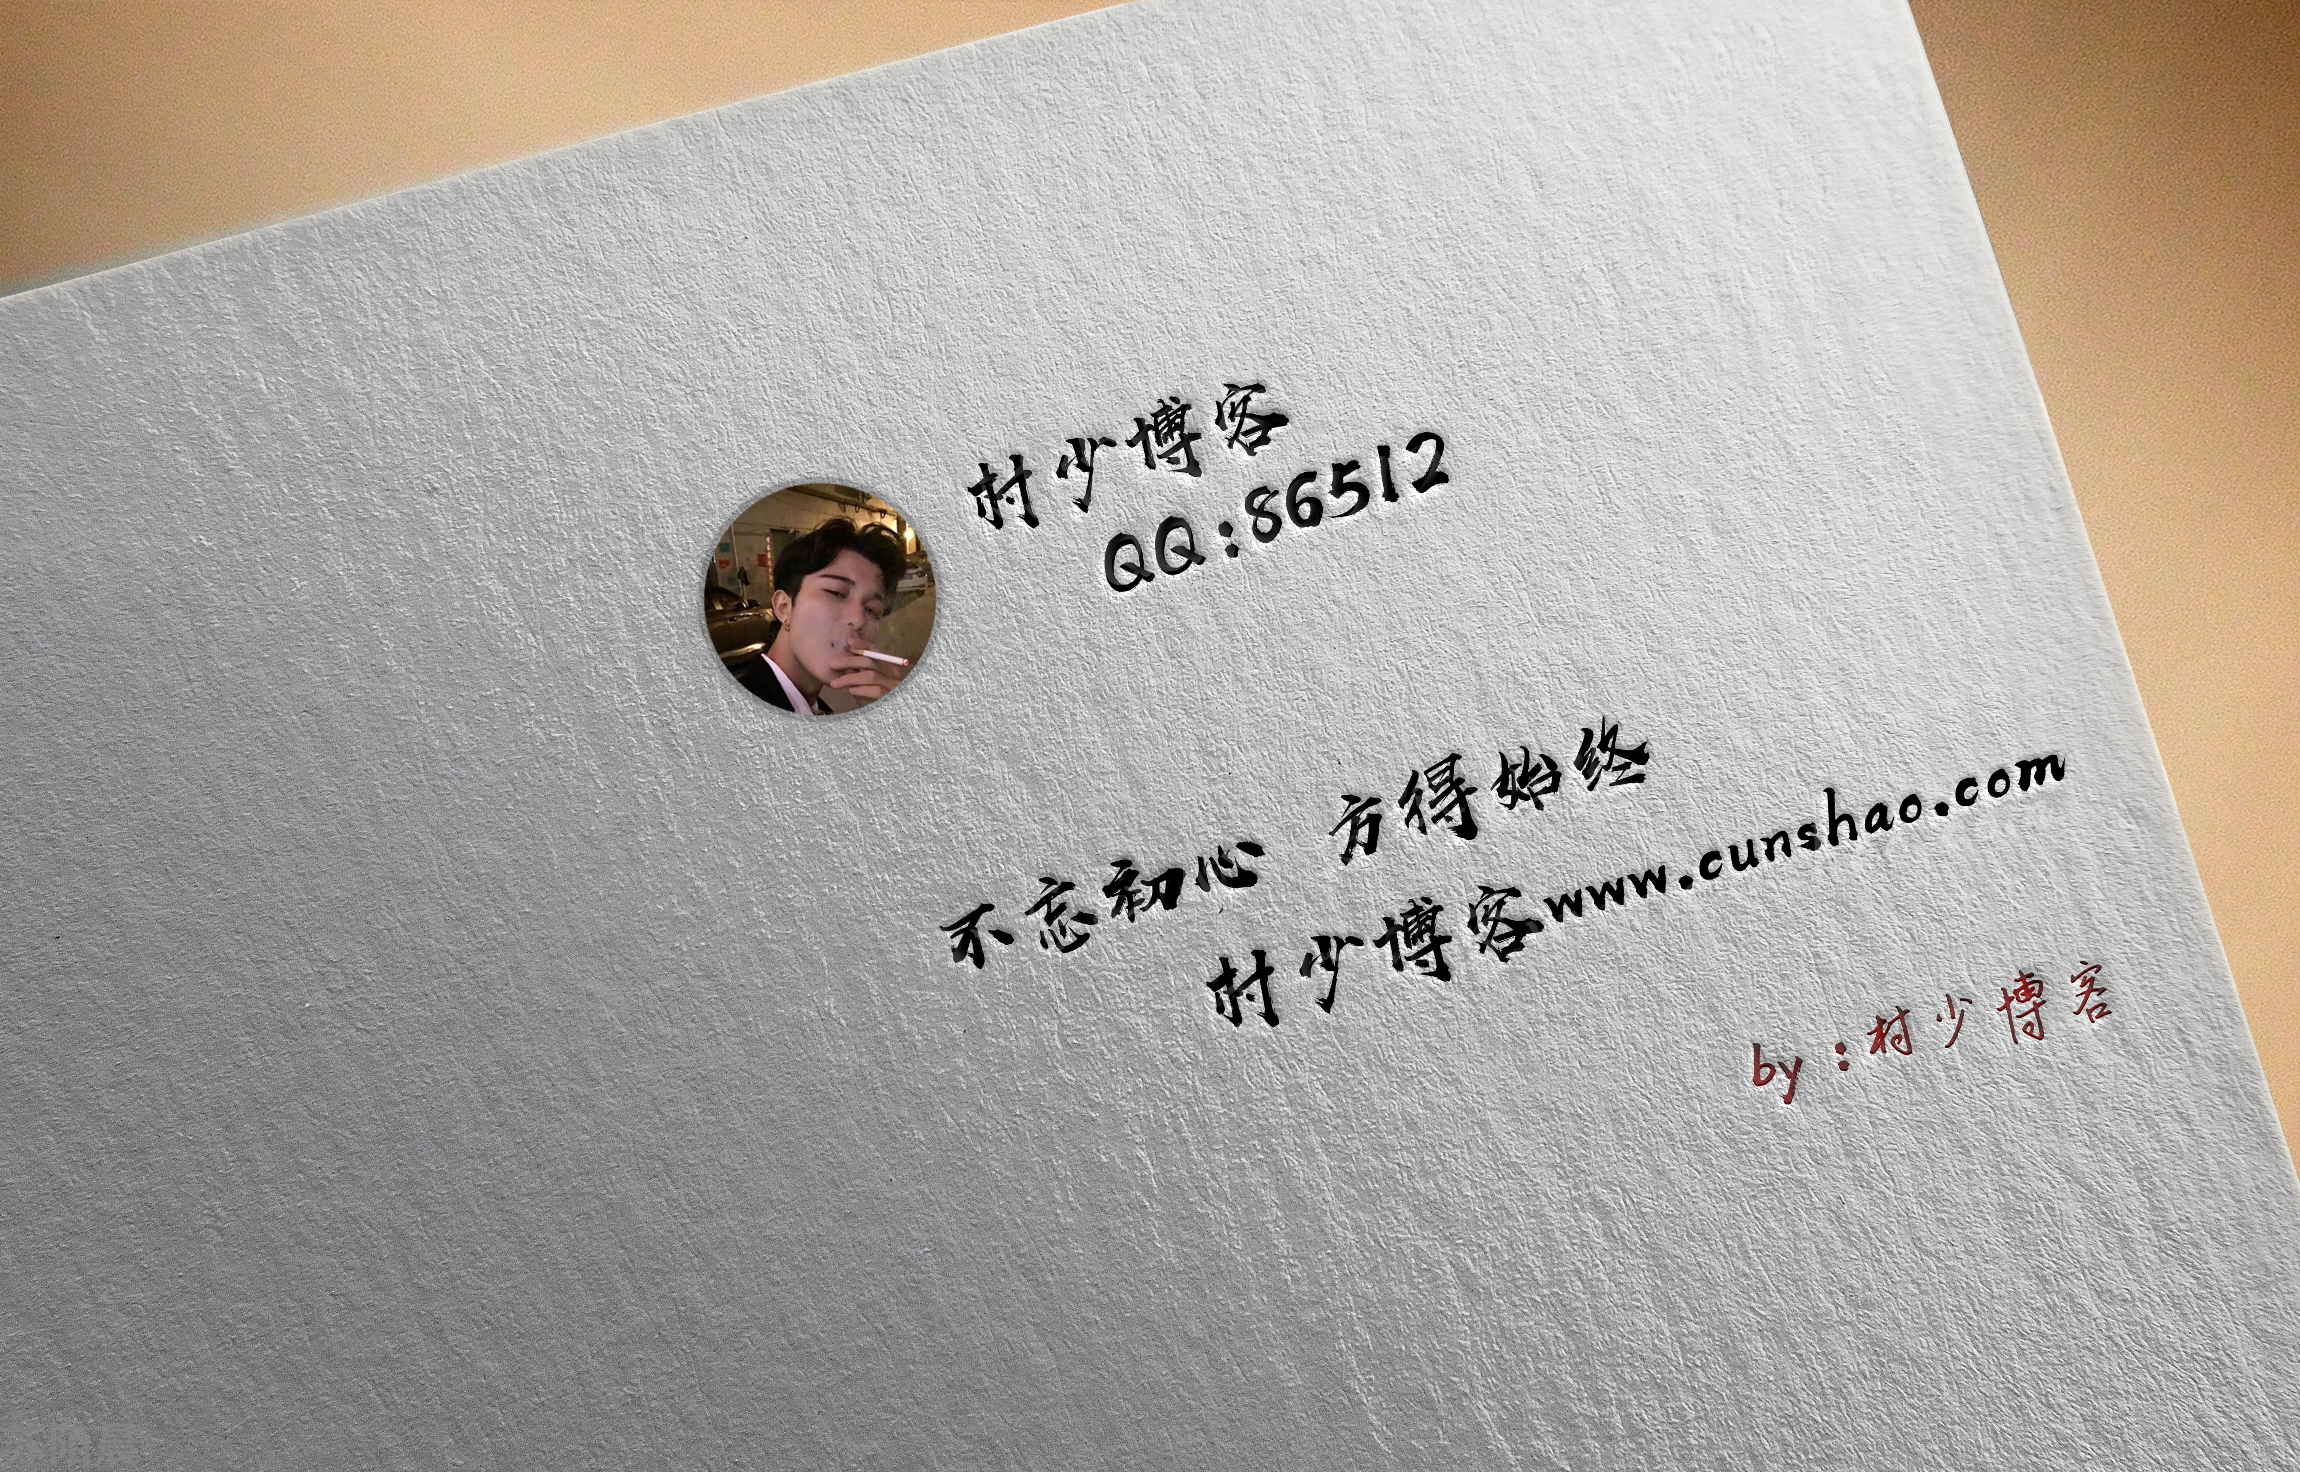 村少博客
QQ:86512
不忘初心 方得始终
村少博客www.cunshao.com
by:村少博客